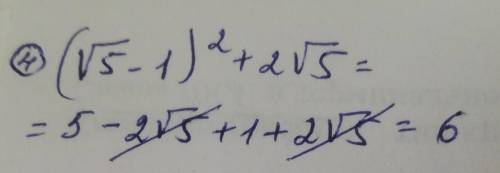 ④ (√5 - 1)² + 2√5 =
= 5 - 2√5 + 1 + 2√5 = 6